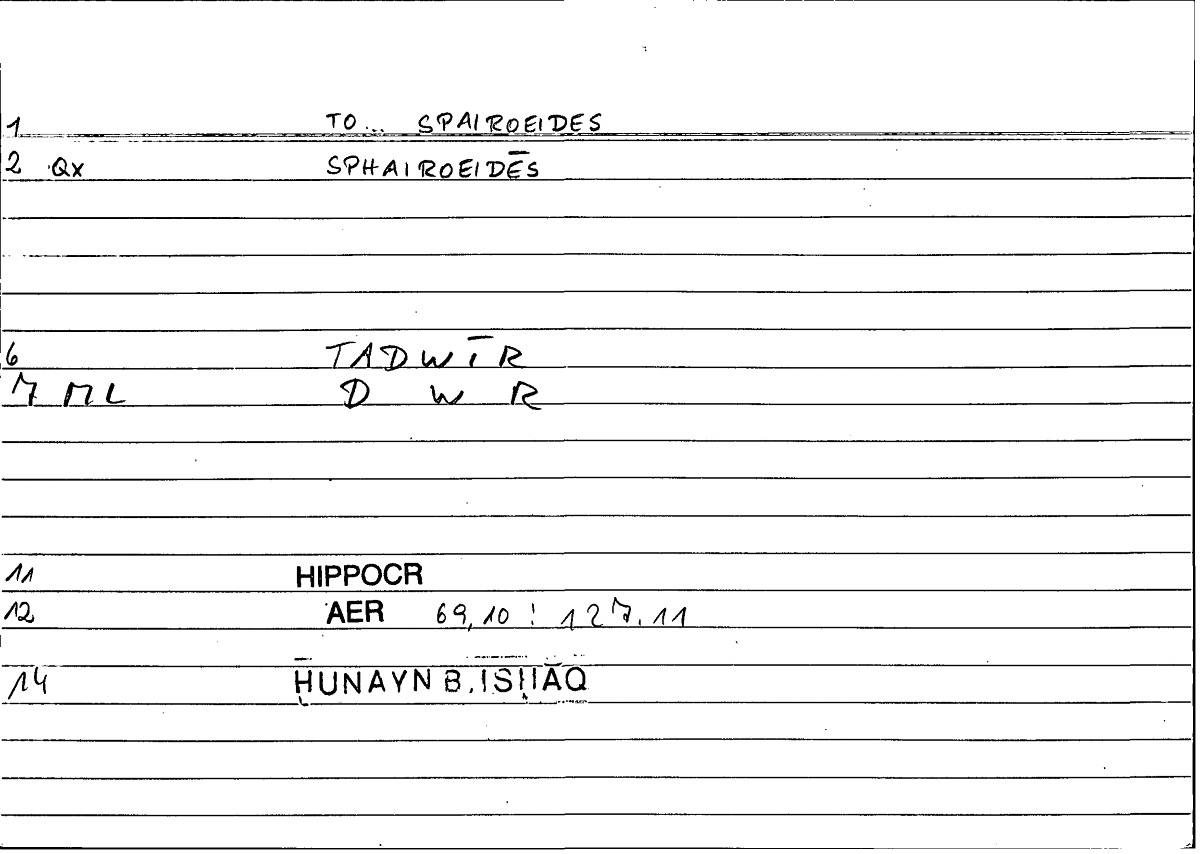 1 TO... SPAIROEIDES
2 Qx SPHAIROEIDĒS
6 TADWĪR
7 ML D W R
11 HIPPOCR
12 AER 69,10 : 127.11
14 ḤUNAYN B. ISḤĀQ